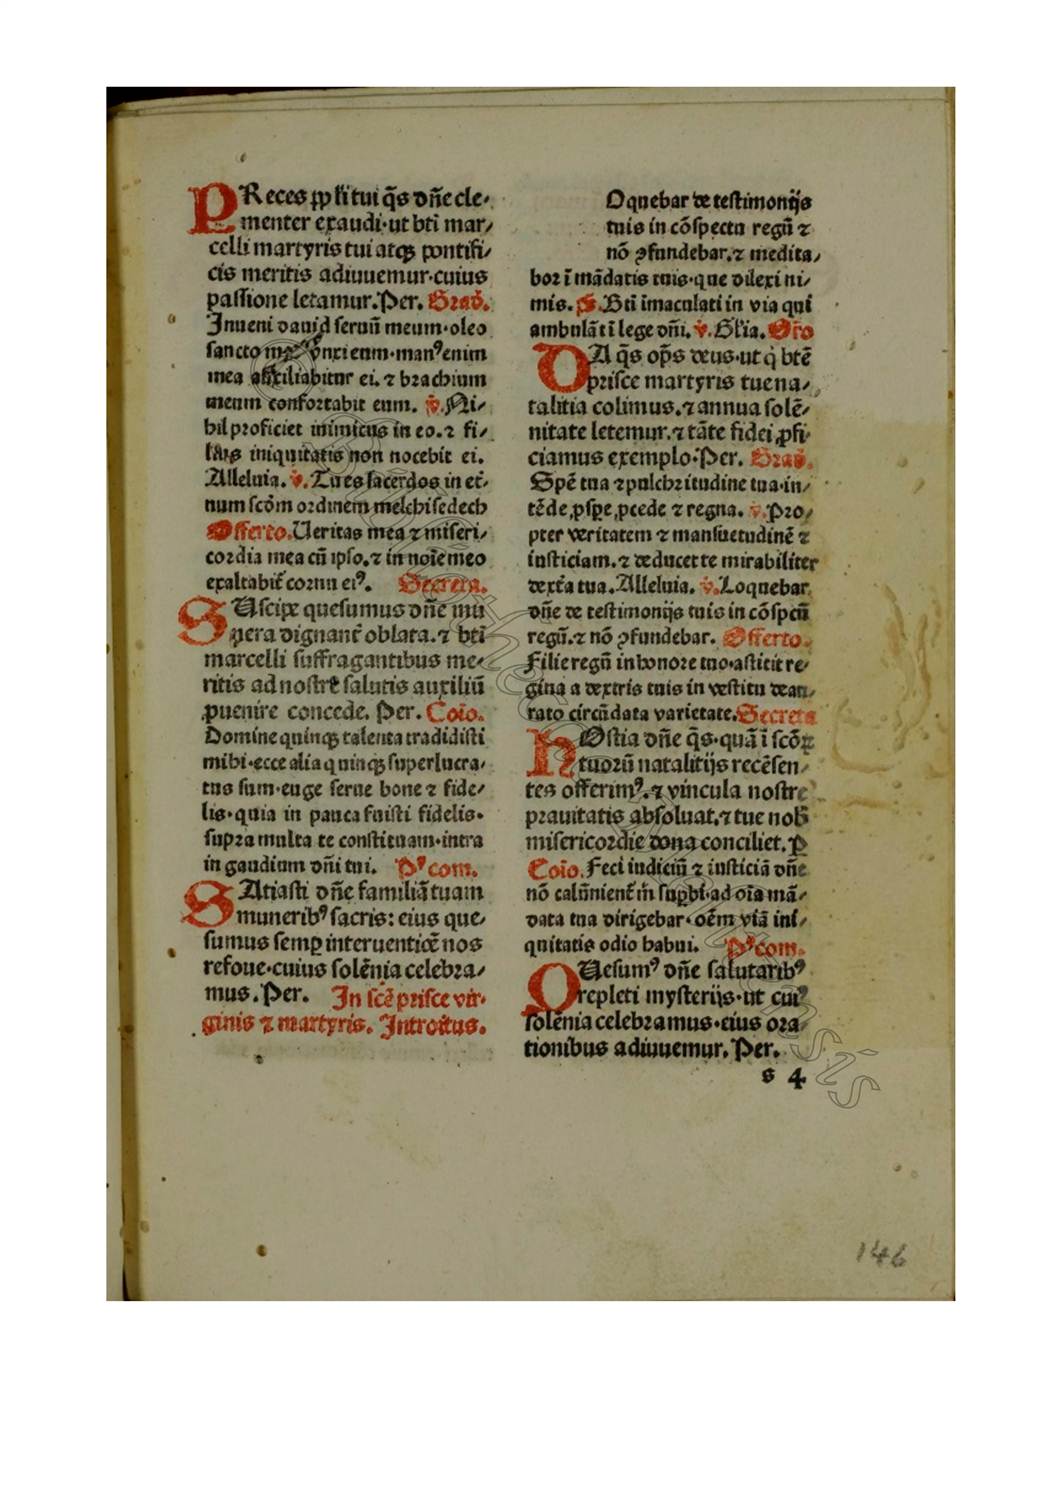 PReces ppl̄i tui q̄s dn̄e cle⸗
menter exaudi·ut bti̅ mar⸗
celli martyris tui atqȝ pontifi⸗
cis meritis adiuuemur·cuius
passione letamur. Per. Grad̄.
Inueni dauid seruū meum·oleo
sancto meo vnxi eum·manꝰ enim
mea auxiliabitur ei. ⁊ brachium
meum confortabit eum. v̄. Ni⸗
hil proficiet inimicus in eo.⁊ fi⸗
lius iniquitatis non nocebit ei.
Alleluia. v̄. Tu es sacerdos in et̄⸗
num scd̄m ordinem melchisedech
Offerto. Ueritas mea ⁊ miseri⸗
cordia mea cū ipso.⁊ in noīe meo
exaltabit̄ cornu eiꝰ. Secreta.
SUscipe quesumus dn̄e mu̅
nera dignant̄ oblata.⁊ bti̅
marcelli suffragantibus me⸗
ritis ad nostre salutis auxiliū
ꝓuenire concede. Per. Coīo.
Domine quinqȝ talenta tradidisti
mihi·ecce alia quinqȝ superlucra⸗
tus sum·euge serue bone ⁊ fide⸗
lis·quia in pauca fuisti fidelis·
supra multa te constituam·intra
in gaudium dn̄i tui. Pꝰ com.
SAtiasti dn̄e familiā tuam
muneribꝰ sacris: eius que⸗
sumus semꝑ interuentiōe nos
refoue·cuius solēnia celebra⸗
mus. Per. In scē prisce vir⸗
ginis ⁊ martyris. Introitus.
Oquebar de testimonijs
tuis in cōspectu regū ⁊
nō ꝯfundebar.⁊ medita⸗
bor ī mādatis tuis·que dilexi ni⸗
mis. ps. Bti̅ īmaculati in via qui
ambulāt ī lege dn̄i. v̄. Gl̄ia. Or̄o
DA q̄s op̄s deus·ut q̇ btē
prisce martyris tue na⸗
talitia colimus.⁊ annua solē⸗
nitate letemur.⁊ tāte fidei ꝓfi⸗
ciamus exemplo. Per. Grad̄.
Spē tua ⁊ pulchritudine tua·in⸗
tēde ꝓspe ꝓcede ⁊ regna. v̄. Pro⸗
pter veritatem ⁊ mansuetudinē ⁊
iusticiam.⁊ deducet te mirabiliter
dext̄a tua. Alleluia. v̄. Loquebar
dn̄e de testimonijs tuis in cōspcū
regū.⁊ nō ꝯfundebar. Offerto.
Filie regū in honore tuo·astitit re⸗
gina a dextris tuis in vestitu deau⸗
rato circūdata varietate. Secreta
hOstia dn̄e q̄s·quā ī scōꝝ
tuorū natalitijs recēsen⸗
tes offerimꝰ.⁊ vincula nostre
prauitatis absoluat.⁊ tue nob̄
misericordie dona conciliet. ꝑ
Coīo. Feci iudiciū ⁊ iusticiā dn̄e
nō calūnient̄ m̄ supb̄i·ad oīa mā⸗
data tua dirigebar·oēm viā ini⸗
quitatis odio habui. Pꝰ com.
QUesumꝰ dn̄e salutaribꝰ
repleti mysterijs·ut cuiꝰ
solēnia celebramus·eius ora⸗
tionibus adiuuemur. Per.
s 4
146